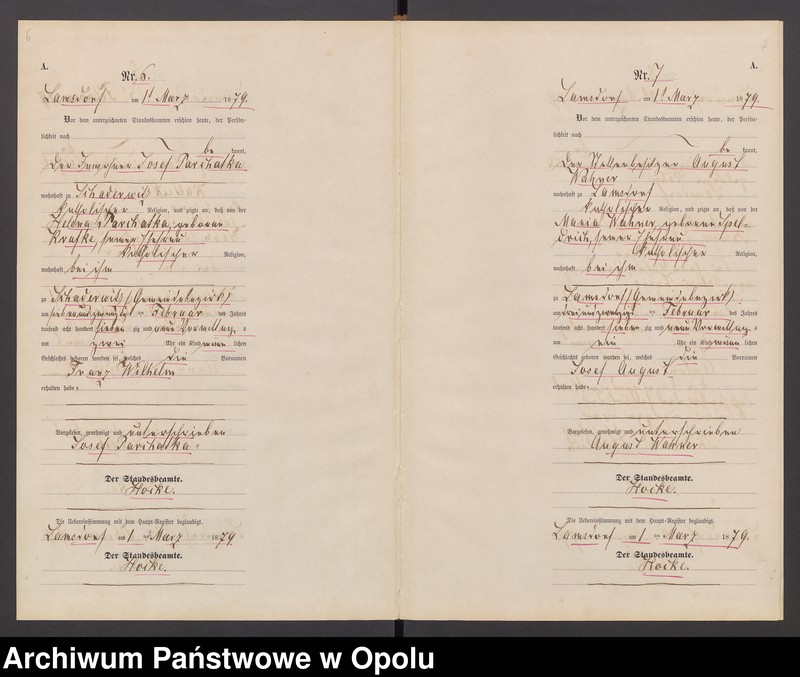 6
A.
Nr. 6.
Lamsdorf am 1t März 1879.
Vor dem unterzeichneten Standesbeamten erschien heute, der Persön-
lichkeit nach
be kannt,
Der Inwohner Josef Parchatka
wohnhaft zu Schaderwitz
katholischer Religion, und zeigte an, daß von der
Helena Parchatka, geborene
Kraske, seiner Ehefrau
katholischer Religion,
wohnhaft bei ihm
zu Schaderwitz (Gemeindebezirk)
am siebenundzwanzigsten Februar des Jahres
tausend acht hundert sieben zig und neun Vormittags
um zwei Uhr ein Kind männ lichen
Geschlechts geboren worden sei, welches die Vornamen
Franz Wilhelm
erhalten habe.
Vorgelesen, genehmigt und unterschrieben
Josef Parchatka.
Der Standesbeamte.
Hocke.
Die Uebereinstimmung mit dem Haupt-Register beglaubigt.
Lamsdorf am 1 ten März 1879.
Der Standesbeamte.
Hocke.
7
A.
Nr. 7
Lamsdorf am 1t März 1879.
Vor dem unterzeichneten Standesbeamten erschien heute, der Persön-
lichkeit nach
be kannt,
Der Stellenbesitzer August
Wahner
wohnhaft zu Lamsdorf
katholischer Religion, und zeigte an, daß von der
Maria Wahner geborene
seiner Ehefrau
katholischer Religion,
wohnhaft bei ihm
zu Lamsdorf (Gemeindebezirk)
am dreiundzwanzigsten Februar des Jahres
tausend acht hundert sieben zig und neun Vormittags
um ein Uhr ein Kind männ lichen
Geschlechts geboren worden sei, welches die Vornamen
Josef August
erhalten habe.
Vorgelesen, genehmigt und unterschrieben
August Wahner
Der Standesbeamte.
Hocke.
Die Uebereinstimmung mit dem Haupt-Register beglaubigt.
Lamsdorf am 1 ten März 1879.
Der Standesbeamte.
Hocke.
Archiwum Państwowe w Opolu